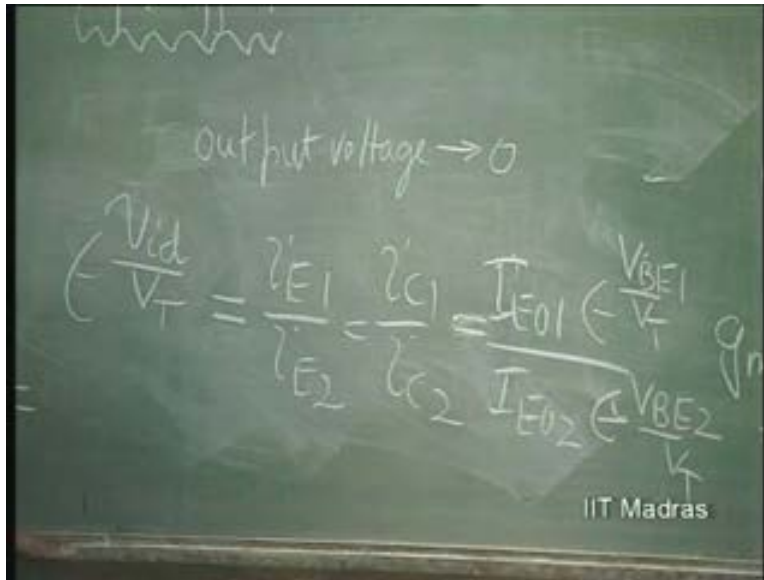 output voltage → 0
∈^(Vid/V_T) = i_E1/i_E2 = i_C1/i_C2 = I_E01 ∈^(V_BE1/V_T) / I_E02 ∈^(V_BE2/V_T)
=
IIT Madras